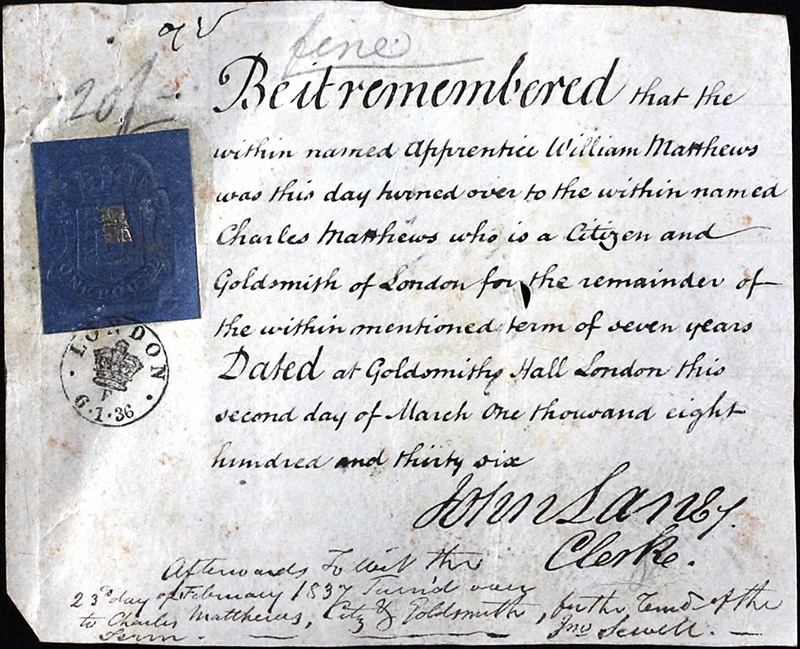 fine
20/-
Be it remembered that the
within named Apprentice William Matthews
was this day turned over to the within named
Charles Matthews who is a Citizen and
Goldsmith of London for the remainder of
the within mentioned term of seven years
Dated at Goldsmiths Hall London this
second day of March One thousand eight
hundred and thirty six
John Lane
Clerke.
LONDON
F
6.1.36
Afterwards To Wit the
23d day of February 1837 Turn'd over
to Charles Matthews, Citz & Goldsmith, for the Remd. of the
Term. Jno Sewell.